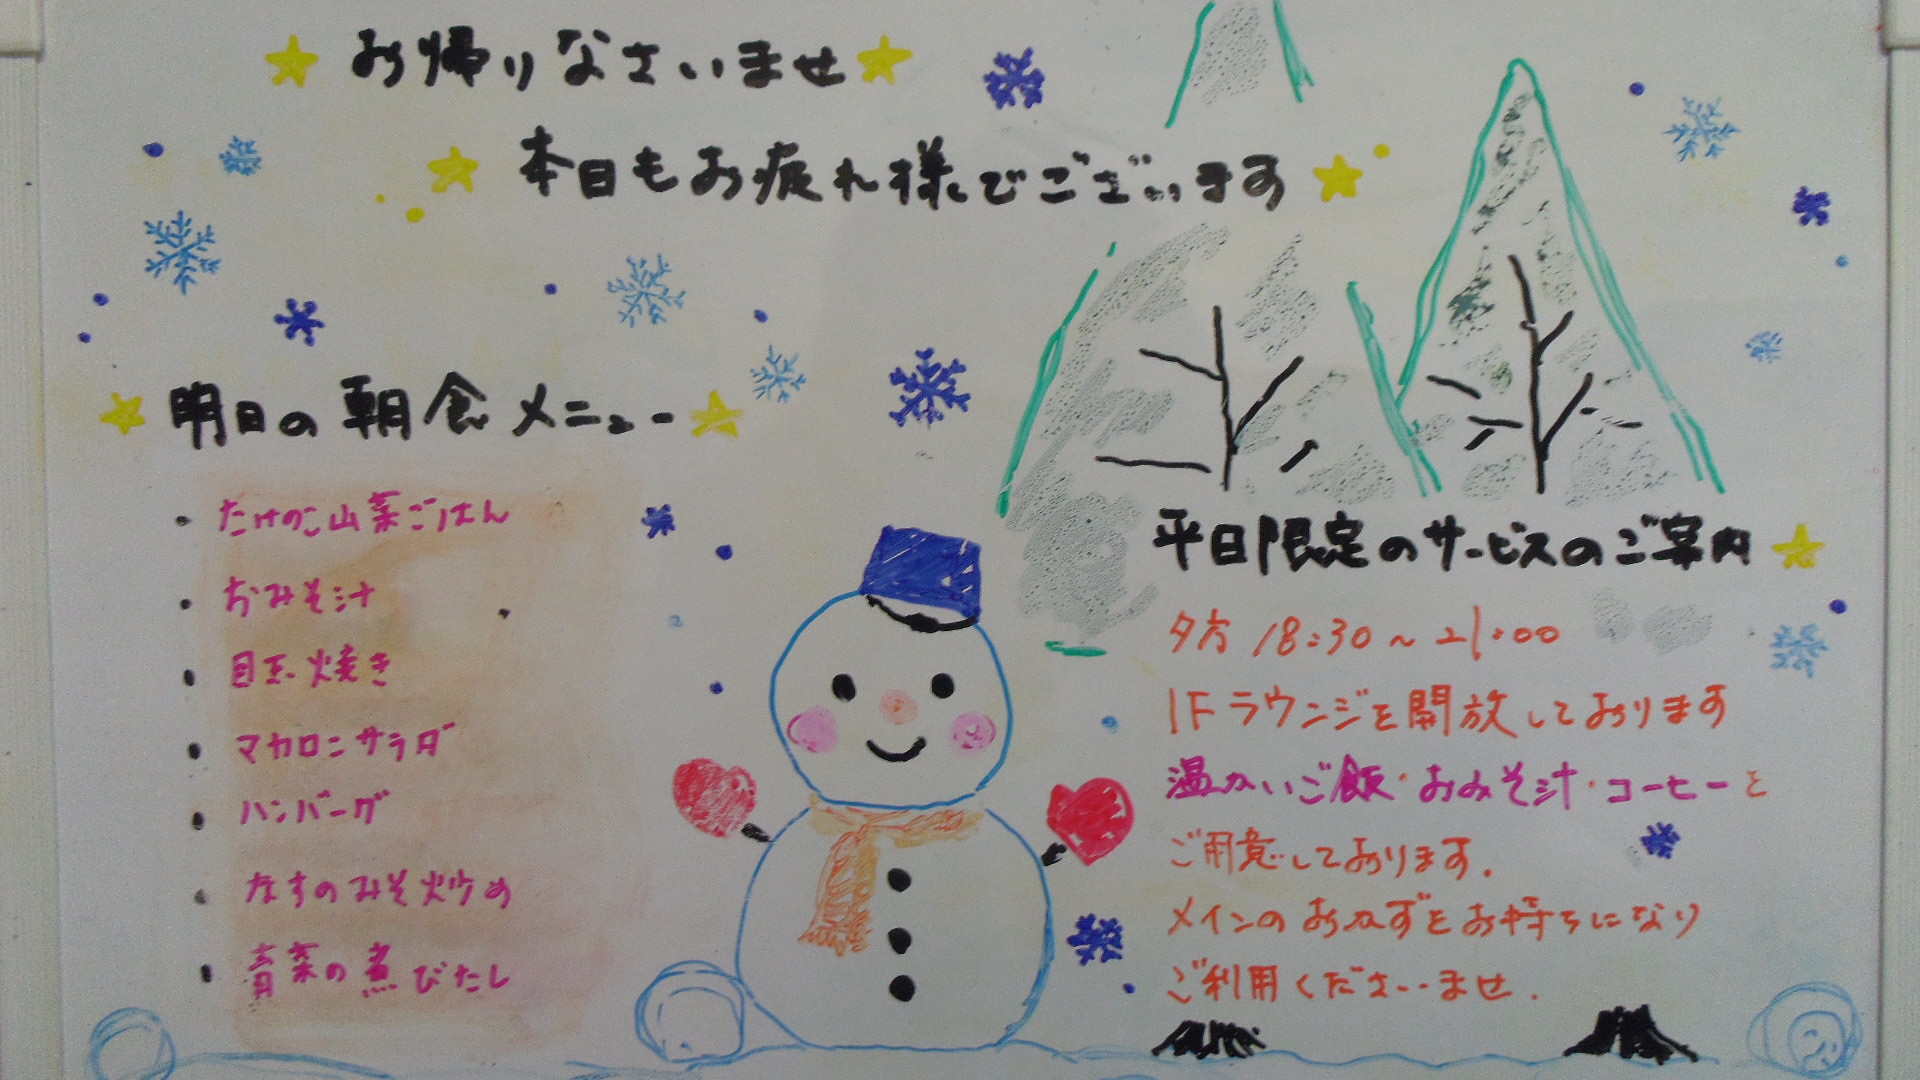 お帰りなさいませ
本日もお疲れ様でございます
明日の朝食メニュー
・たけのこ山菜ごはん
・おみそ汁
・目玉焼き
・マカロニサラダ
・ハンバーグ
・なすのみそ炒め
・青菜の煮びたし
平日限定のサービスのご案内
夕方 18:30~21:00
1Fラウンジを開放しております
温かいご飯・おみそ汁・コーヒーを
ご用意しております.
メインのおかずをお持ちになり
ご利用くださいませ.